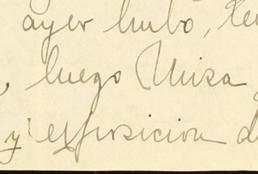 ayer hubo,
, luego Misa
y exposicion d